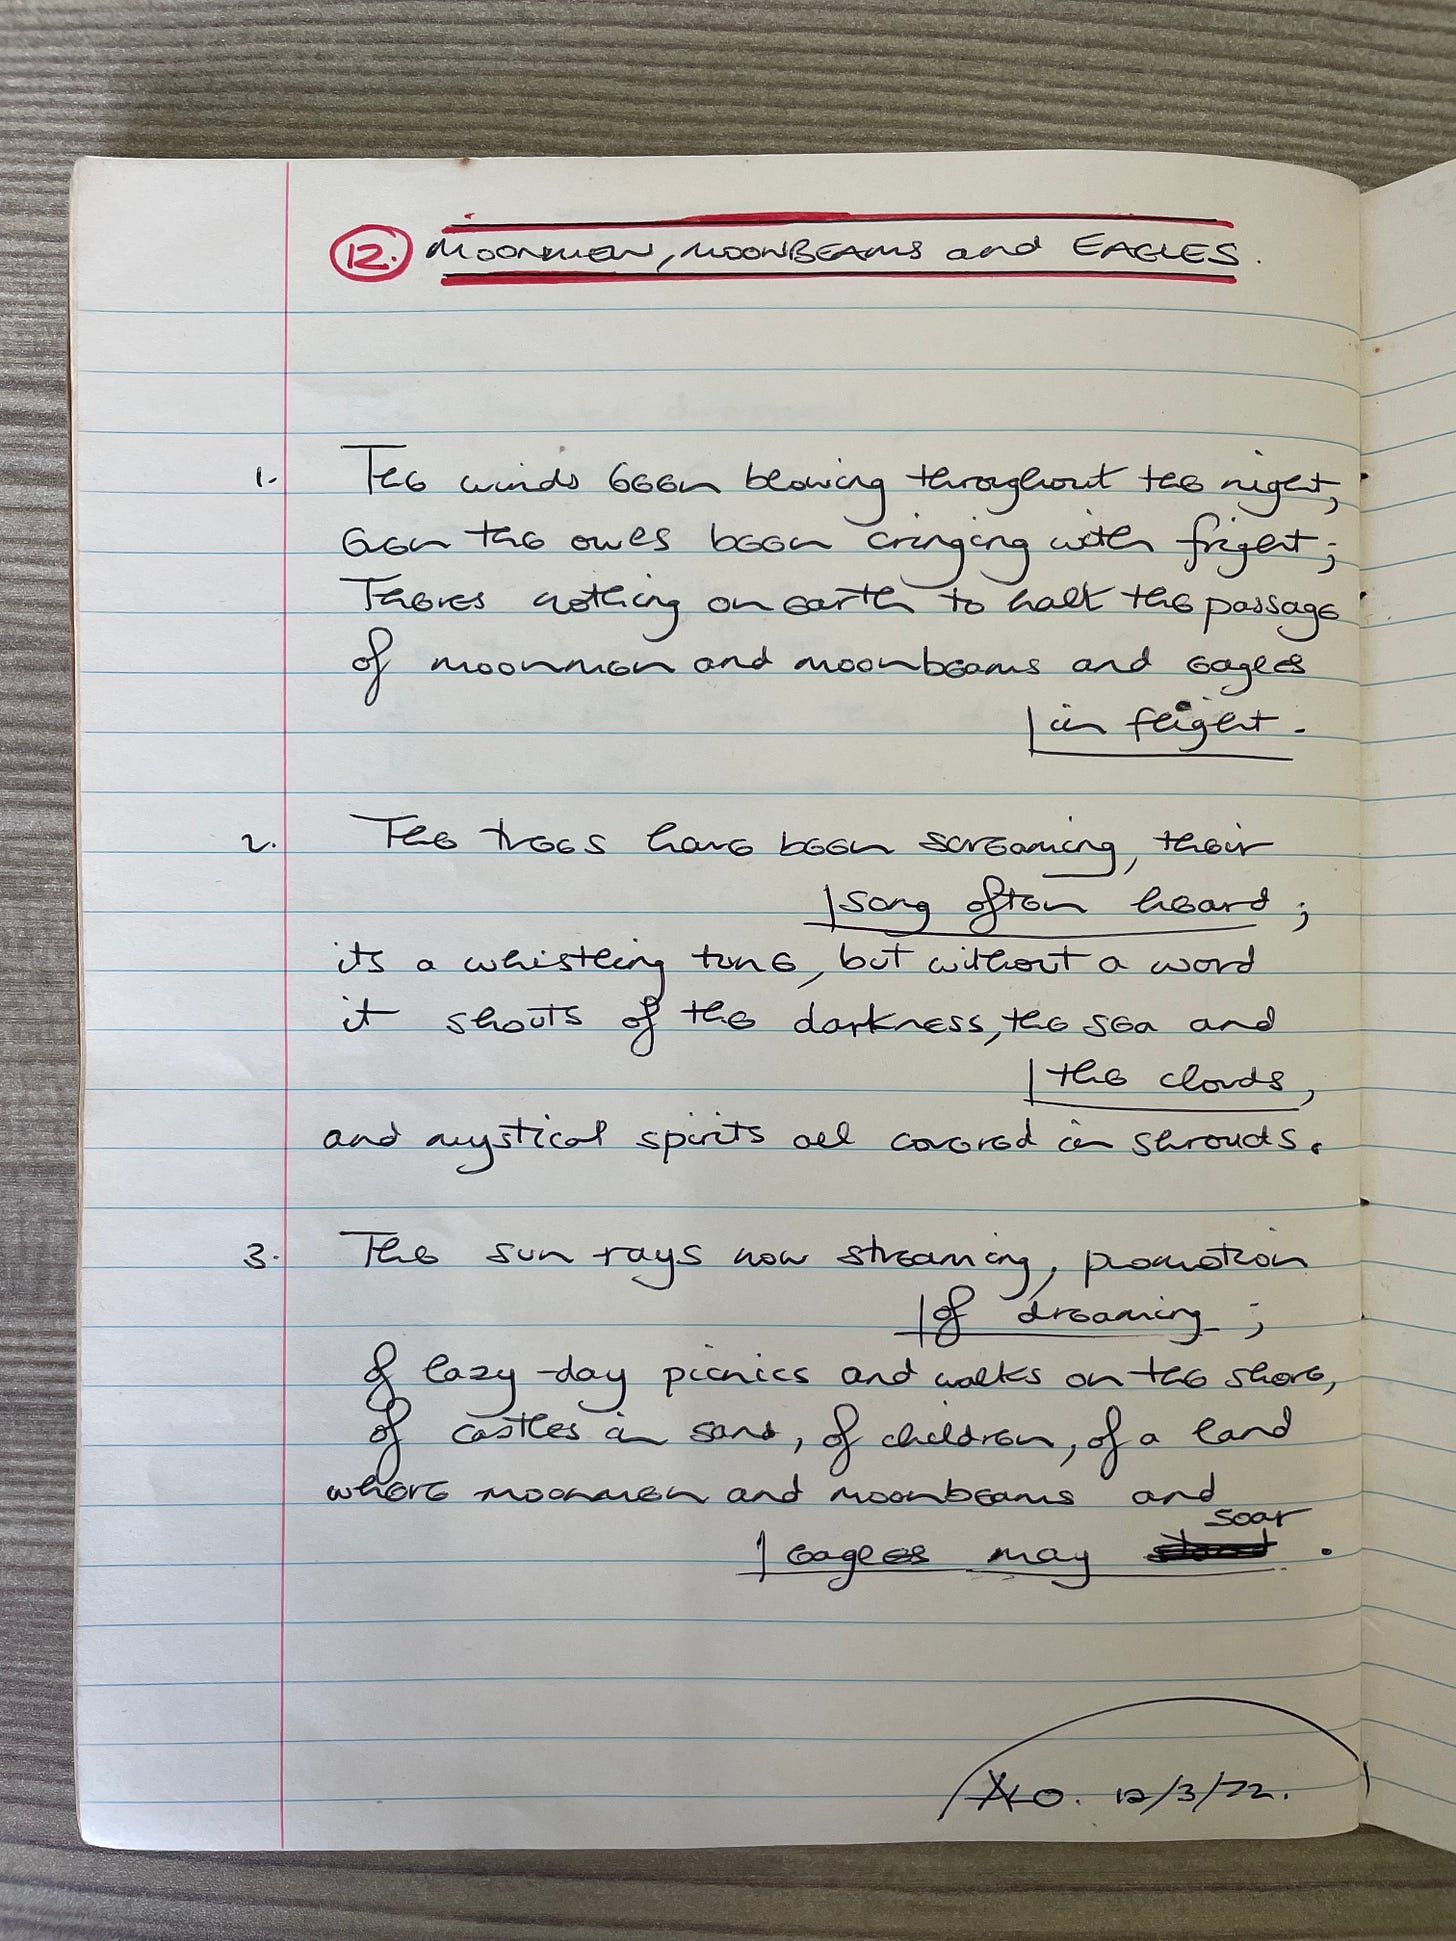 12. MOONMEN, MOONBEAMS and EAGLES.
1. The winds been blowing throughout the night,
Even the owls been cringing with fright;
Theres nothing on earth to halt the passage
of moonmen and moonbeams and eagles
in flight.
2. The trees have been screaming, their
song often heard;
its a whistling tune, but without a word
it shouts of the darkness, the sea and
the clouds,
and mystical spirits all covered in shrouds.
3. The sun rays now streaming, promotion
of dreaming;
Of lazy-day picnics and walks on the shore,
of castles in sand, of children, of a land
where moonmen and moonbeams and
soar
eagles may .
12/3/72.